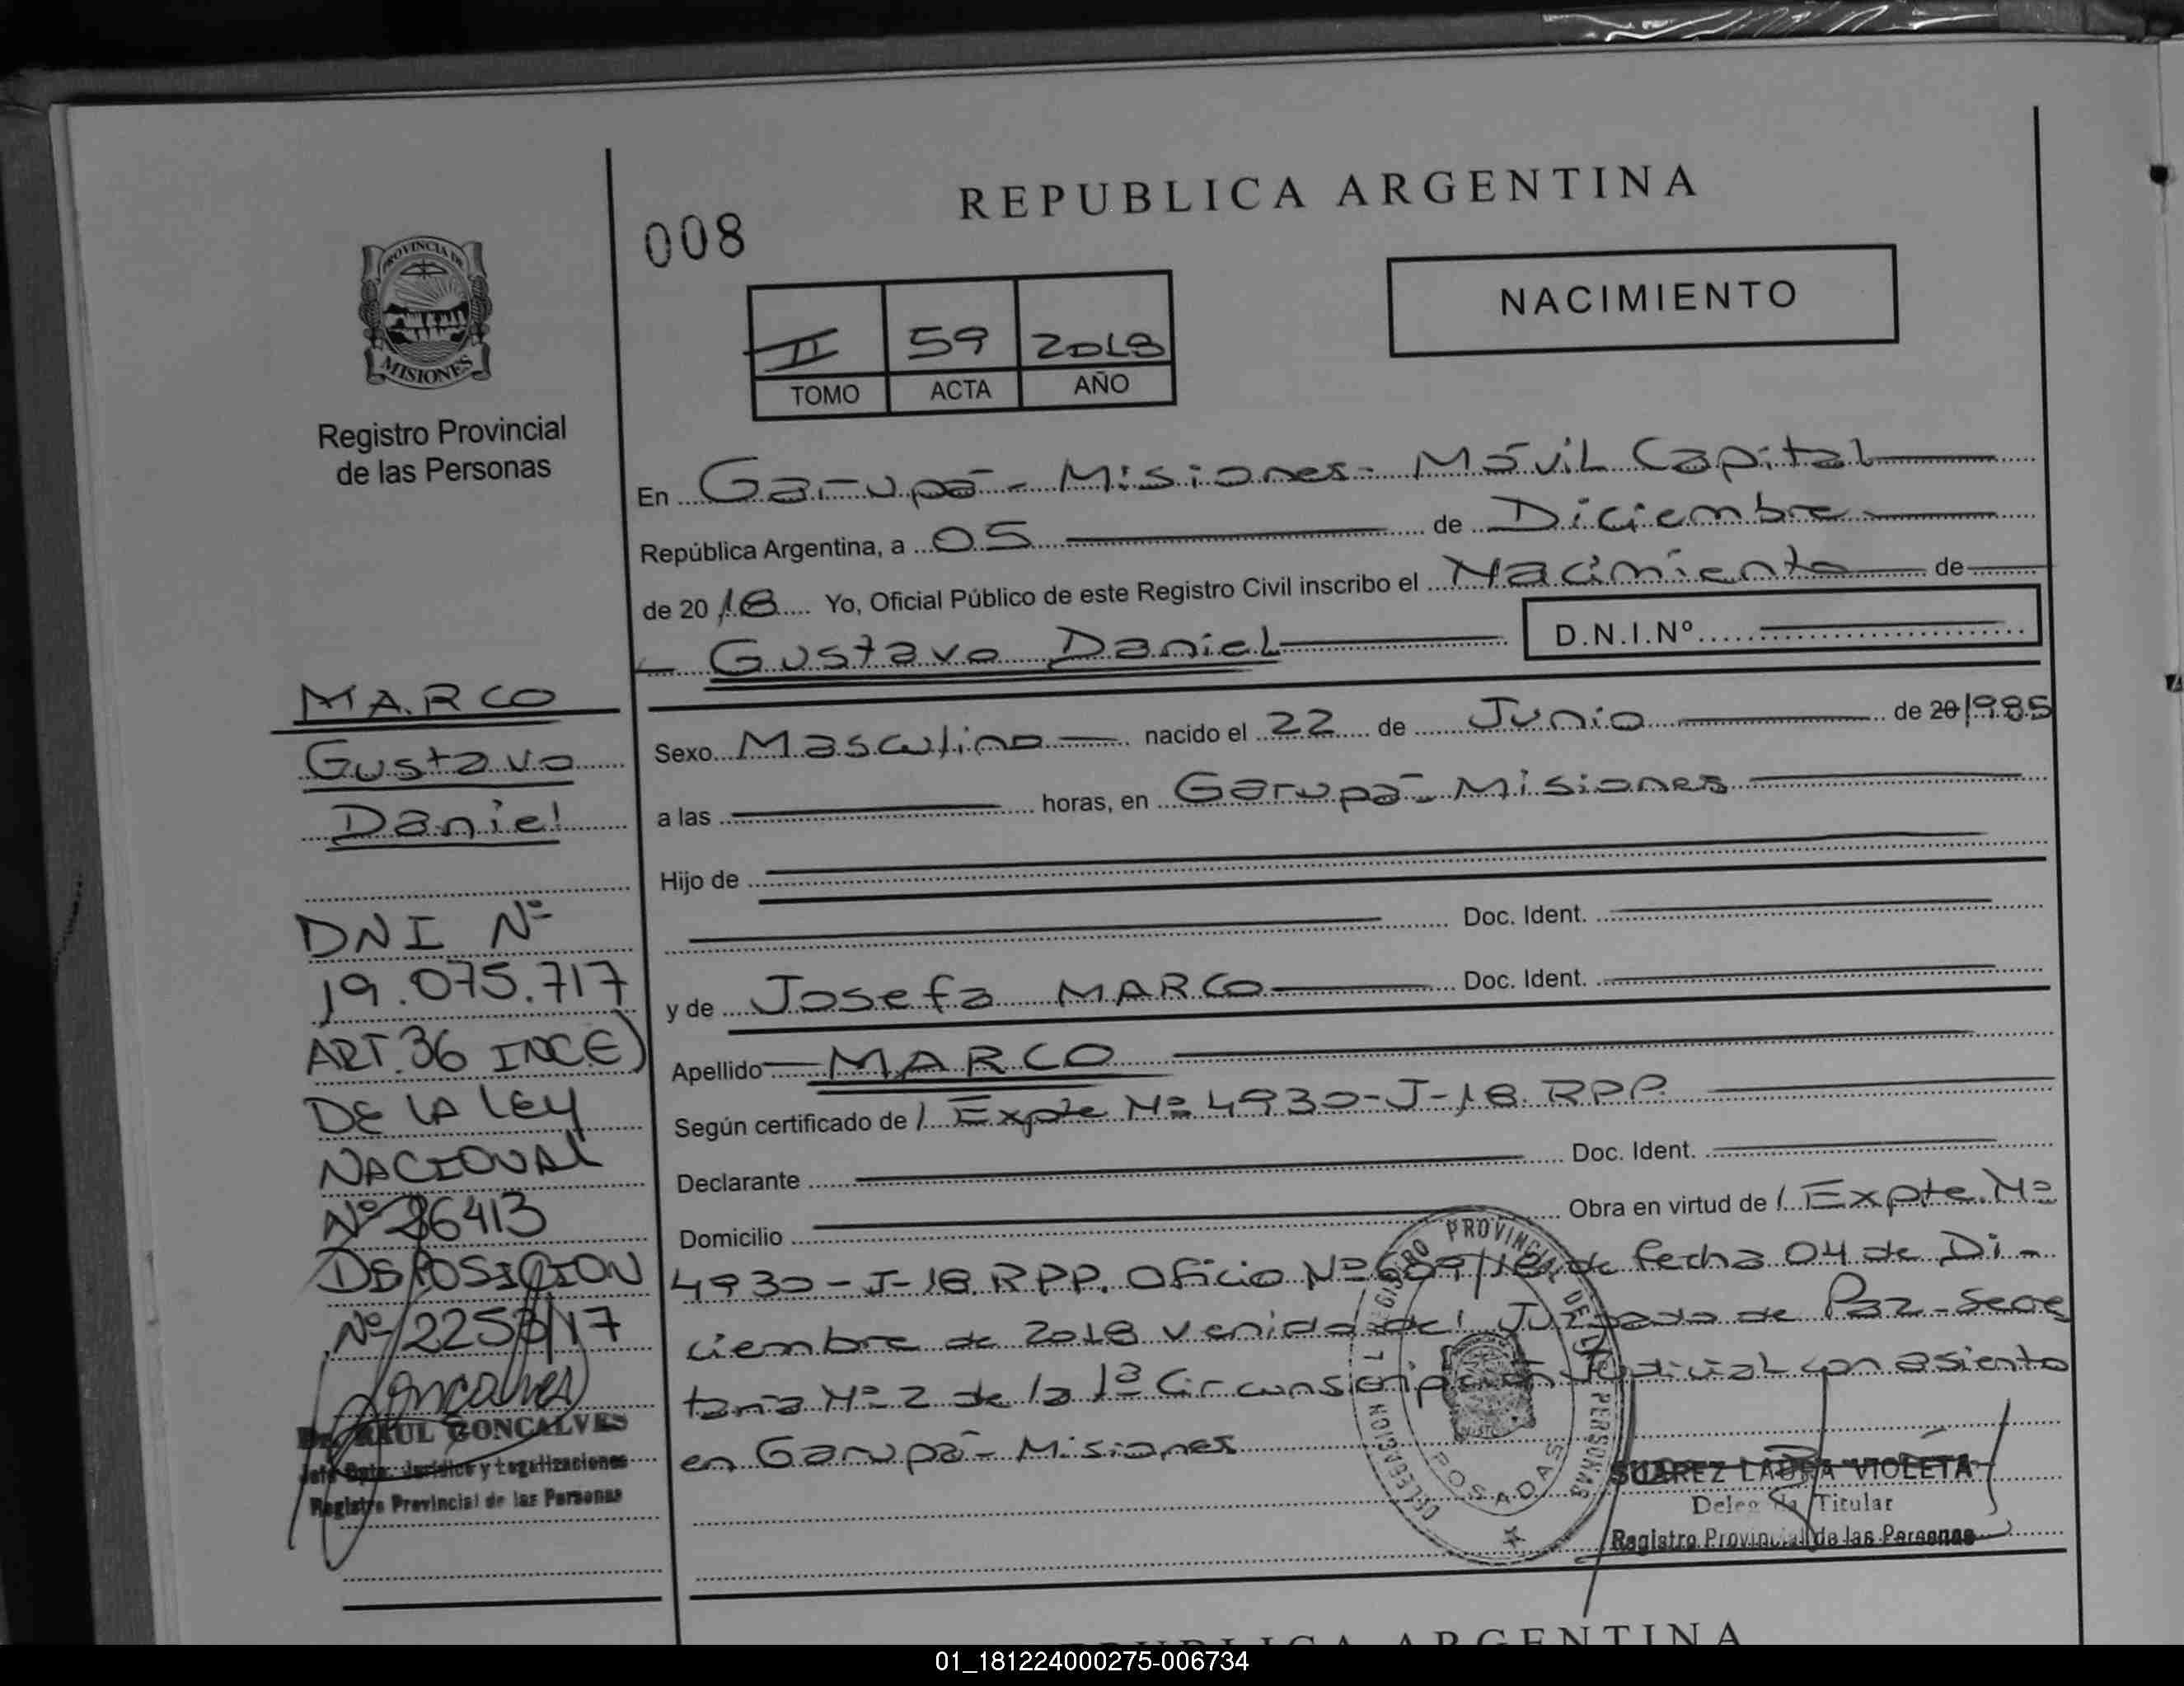 REPUBLICA ARGENTINA
008
NACIMIENTO
II 59 2018
TOMO ACTA AÑO
PROVINCIA DE
MISIONES
Registro Provincial
de las Personas
En Garupá - Misiones - Móvil Capital
República Argentina, a 05 de Diciembre
de 20 18 Yo, Oficial Público de este Registro Civil inscribo el Nacimiento de
Gustavo Daniel D.N.I.Nº
Sexo Masculino nacido el 22 de Junio de 20 1985
a las horas, en Garupá - Misiones
Hijo de
Doc. Ident.
y de Josefa MARCO Doc. Ident.
Apellido MARCO
Según certificado de / Expte Nº 4930-J-18 RPP.
Declarante Doc. Ident.
Domicilio Obra en virtud de / Expte Nº
4930-J-18 RPP. Oficio Nº 689/18, de fecha 04 de Di-
ciembre de 2018 venido del Juzgado de Paz - Secre
taria Nº 2 de la 1ª Judicial con asiento
en Garupá - Misiones
MARCO
Gustavo
Daniel
DNI Nº
19.075.717
ART. 36 INC E)
DE LA LEY
NACIONAL
Nº 26413
DISPOSICION
Nº 2253/17
Goncalves
Dr. RAUL GONCALVES
Jefe Dpto. Jurídico y Legalizaciones
Registro Provincial de las Personas
DELEGACION REGISTRO PROVINCIAL DE PERSONAS
POSADAS
SUAREZ LAURA VIOLETA
Delegada Titular
Registro Provincial de las Personas
REPUBLICA ARGENTINA
01_181224000275-006734